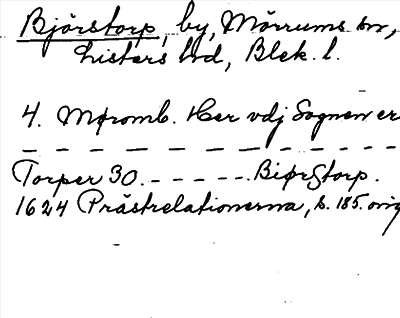 Björstorp, by, Mörrums sn,
Listers hd, Blek. l.
4. Møromb. Her vdj Sognen er
— — — — — — — — — - - - -
Torper 30. - - - - - - Biørstorp.
1624 Prästrelationerna, s. 185. orig